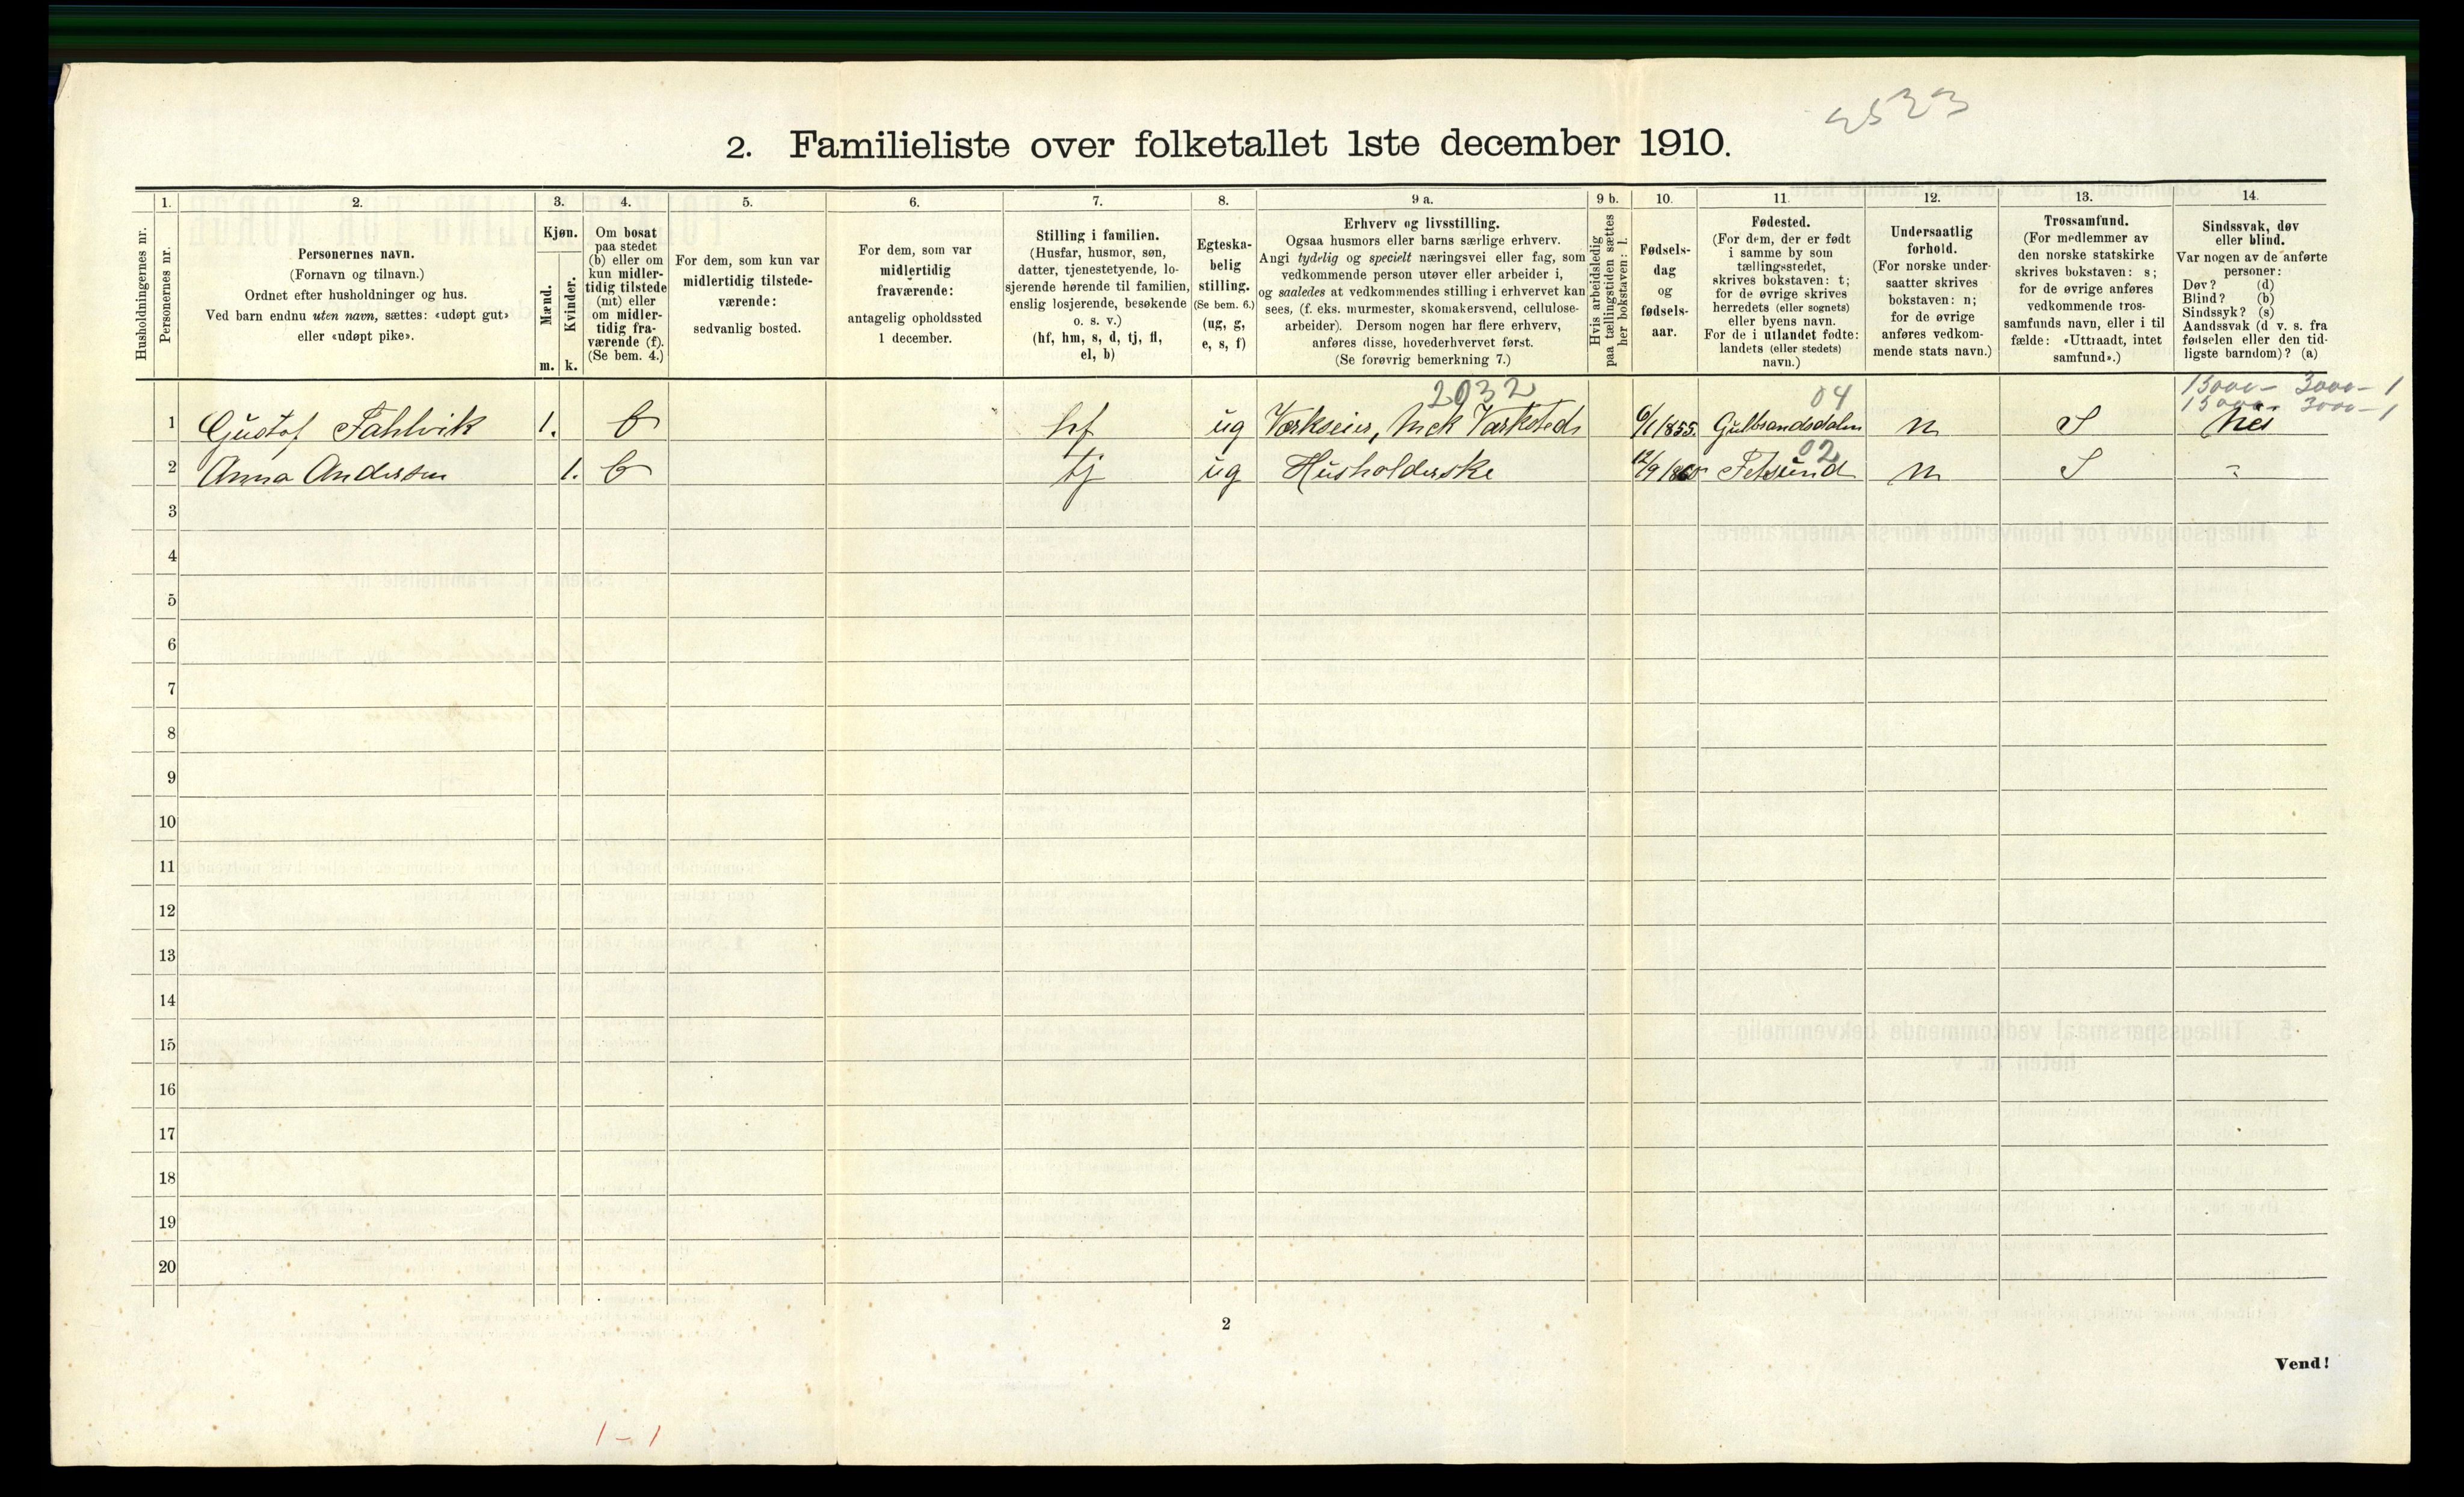 2533
2. Familieliste over folketallet 1ste december 1910.
Husholdningernes nr.
1.
Personernes nr.
2.
Personernes navn.
(Fornavn og tilnavn.)
Ordnet efter husholdninger og hus.
Ved barn endnu uten navn, sættes: «udøpt gut»
eller «udøpt pike».
3.
Kjøn.
Mænd.
Kvinder.
m. k.
4.
Om bosat
paa stedet
(b) eller om
kun midler-
tidig tilstede
(mt) eller
om midler-
tidig fra-
værende (f).
(Se bem. 4.)
5.
For dem, som kun var
midlertidig tilstede-
værende:
sedvanlig bosted.
6.
For dem, som var
midlertidig
fraværende:
antagelig opholdssted
1 december.
7.
Stilling i familien.
(Husfar, husmor, søn,
datter, tjenestetyende, lo-
sjerende hørende til familien,
enslig losjerende, besøkende
o. s. v.)
(hf, hm, s, d, tj, fl,
el, b)
8.
Egteska-
belig
stilling.
(Se bem. 6.)
(ug, g,
e, s, f)
9 a.
Erhverv og livsstilling.
Ogsaa husmors eller barns særlige erhverv.
Angi tydelig og specielt næringsvei eller fag, som
vedkommende person utøver eller arbeider i,
og saaledes at vedkommendes stilling i erhvervet kan
sees, (f. eks. murmester, skomakersvend, cellulose-
arbeider). Dersom nogen har flere erhverv,
anføres disse, hovederhvervet først.
(Se forøvrig bemerkning 7.)
9 b.
Hvis arbeidsledig
paa tællingstiden sættes
her bokstaven: l.
10.
Fødsels-
dag
og
fødsels-
aar.
11.
Fødested.
(For dem, der er født
i samme by som
tællingsstedet,
skrives bokstaven: t;
for de øvrige skrives
herredets (eller sognets)
eller byens navn.
For de i utlandet fødte:
landets (eller stedets)
navn.)
12.
Undersaatlig
forhold.
(For norske under-
saatter skrives
bokstaven: n;
for de øvrige
anføres vedkom-
mende stats navn.)
13.
Trossamfund.
(For medlemmer av
den norske statskirke
skrives bokstaven: s;
for de øvrige anføres
vedkommende tros-
samfunds navn, eller i til
fælde: «Uttraadt, intet
samfund».)
14.
Sindssvak, døv
eller blind.
Var nogen av de anførte
personer:
Døv? (d)
Blind? (b)
Sindssyk? (s)
Aandssvak (d v. s. fra
fødselen eller den tid-
ligste barndom)? (a)
2032 04 15000- 3000-1
15000- 3000-1
1 Gustof Fahlvik 1. b hf ug Værkseier, Mek Værksteds 6/1 1855. Gulbrandsdalen n S Nei
02
2 Anna Andersen 1. b tj ug Husholderske 12/9 Fetsund n S "
3
4
5
6
7
8
9
10
11
12
13
14
15
16
17
18
19
20
2
Vend!
1-1